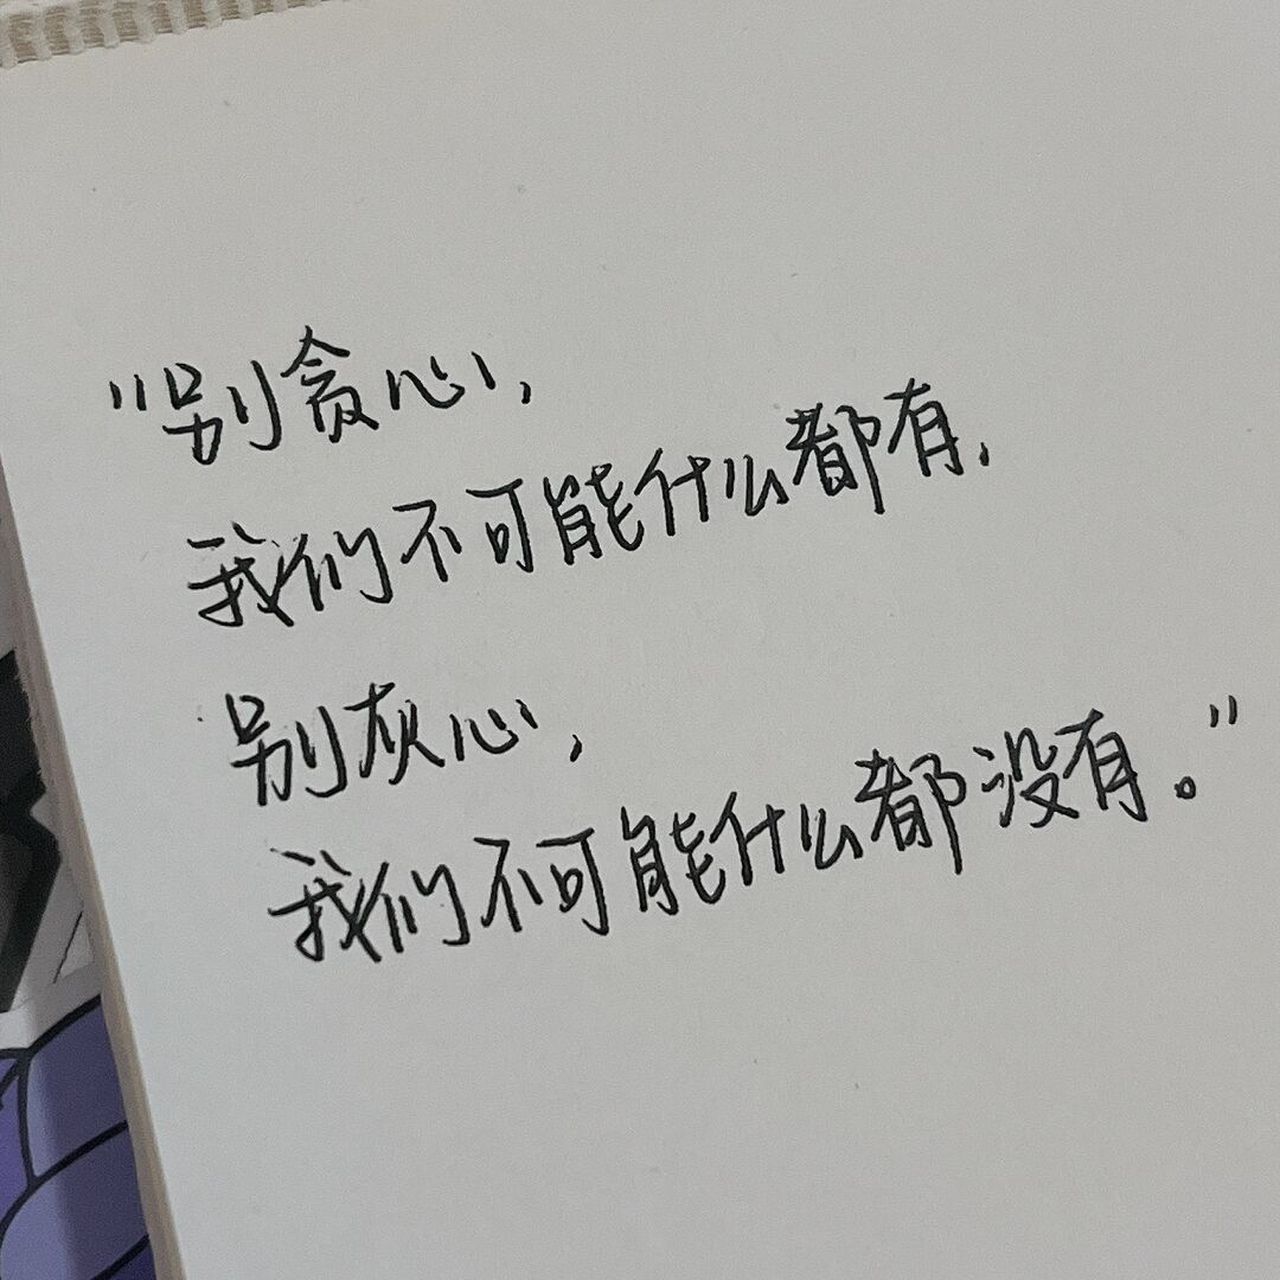 "别贪心，
我们不可能什么都有，
别灰心，
我们不可能什么都没有。"